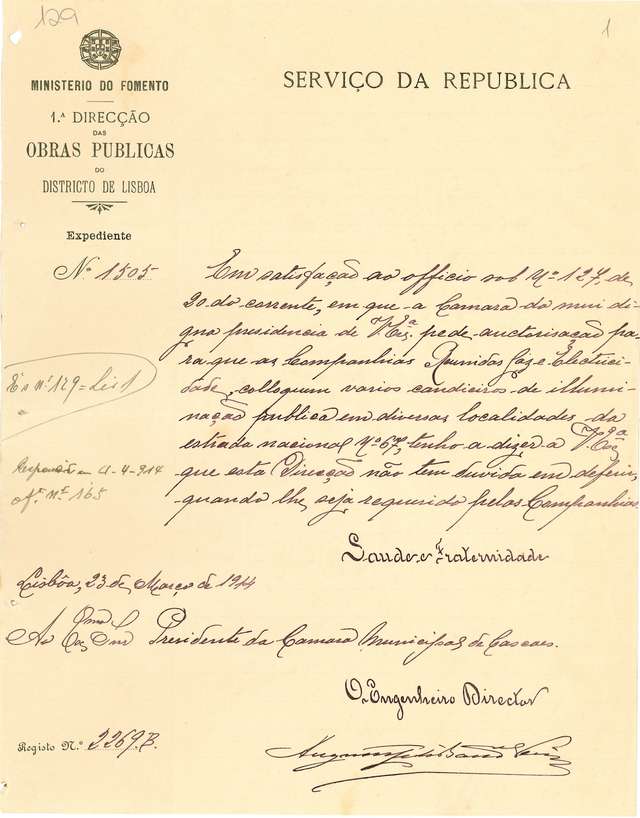 129
1
MINISTERIO DO FOMENTO
1.ª DIRECÇÃO
DAS
OBRAS PUBLICAS
DO
DISTRICTO DE LISBOA
Expediente
Nº 1505
SERVIÇO DA REPUBLICA
Em satisfação ao officio sob Nº 127, de
20 do corrente, em que a Camara da mui di-
gna presidencia de V. Exª. pede auctorisação pa-
ra que as Companhias Reunidas Gaz e Electrici-
dade, colloquem varios candieiros de illumi-
nação publica em diversas localidades da
estrada nacional Nº 67, tenho a dizer a V. Exª
que esta Direcção não tem duvida em deferir,
quando lhe seja requerido pelas Companhias.
E s nº 129 = Liv 1
em 21-4-914
of. nº 165
Saude e Fraternidade
Lisbôa, 23 de Março de 1914
Ao Exmo Snr Presidente da Camara Municipal de Cascaes.
O Engenheiro Director
Registo N.º 2269.B.